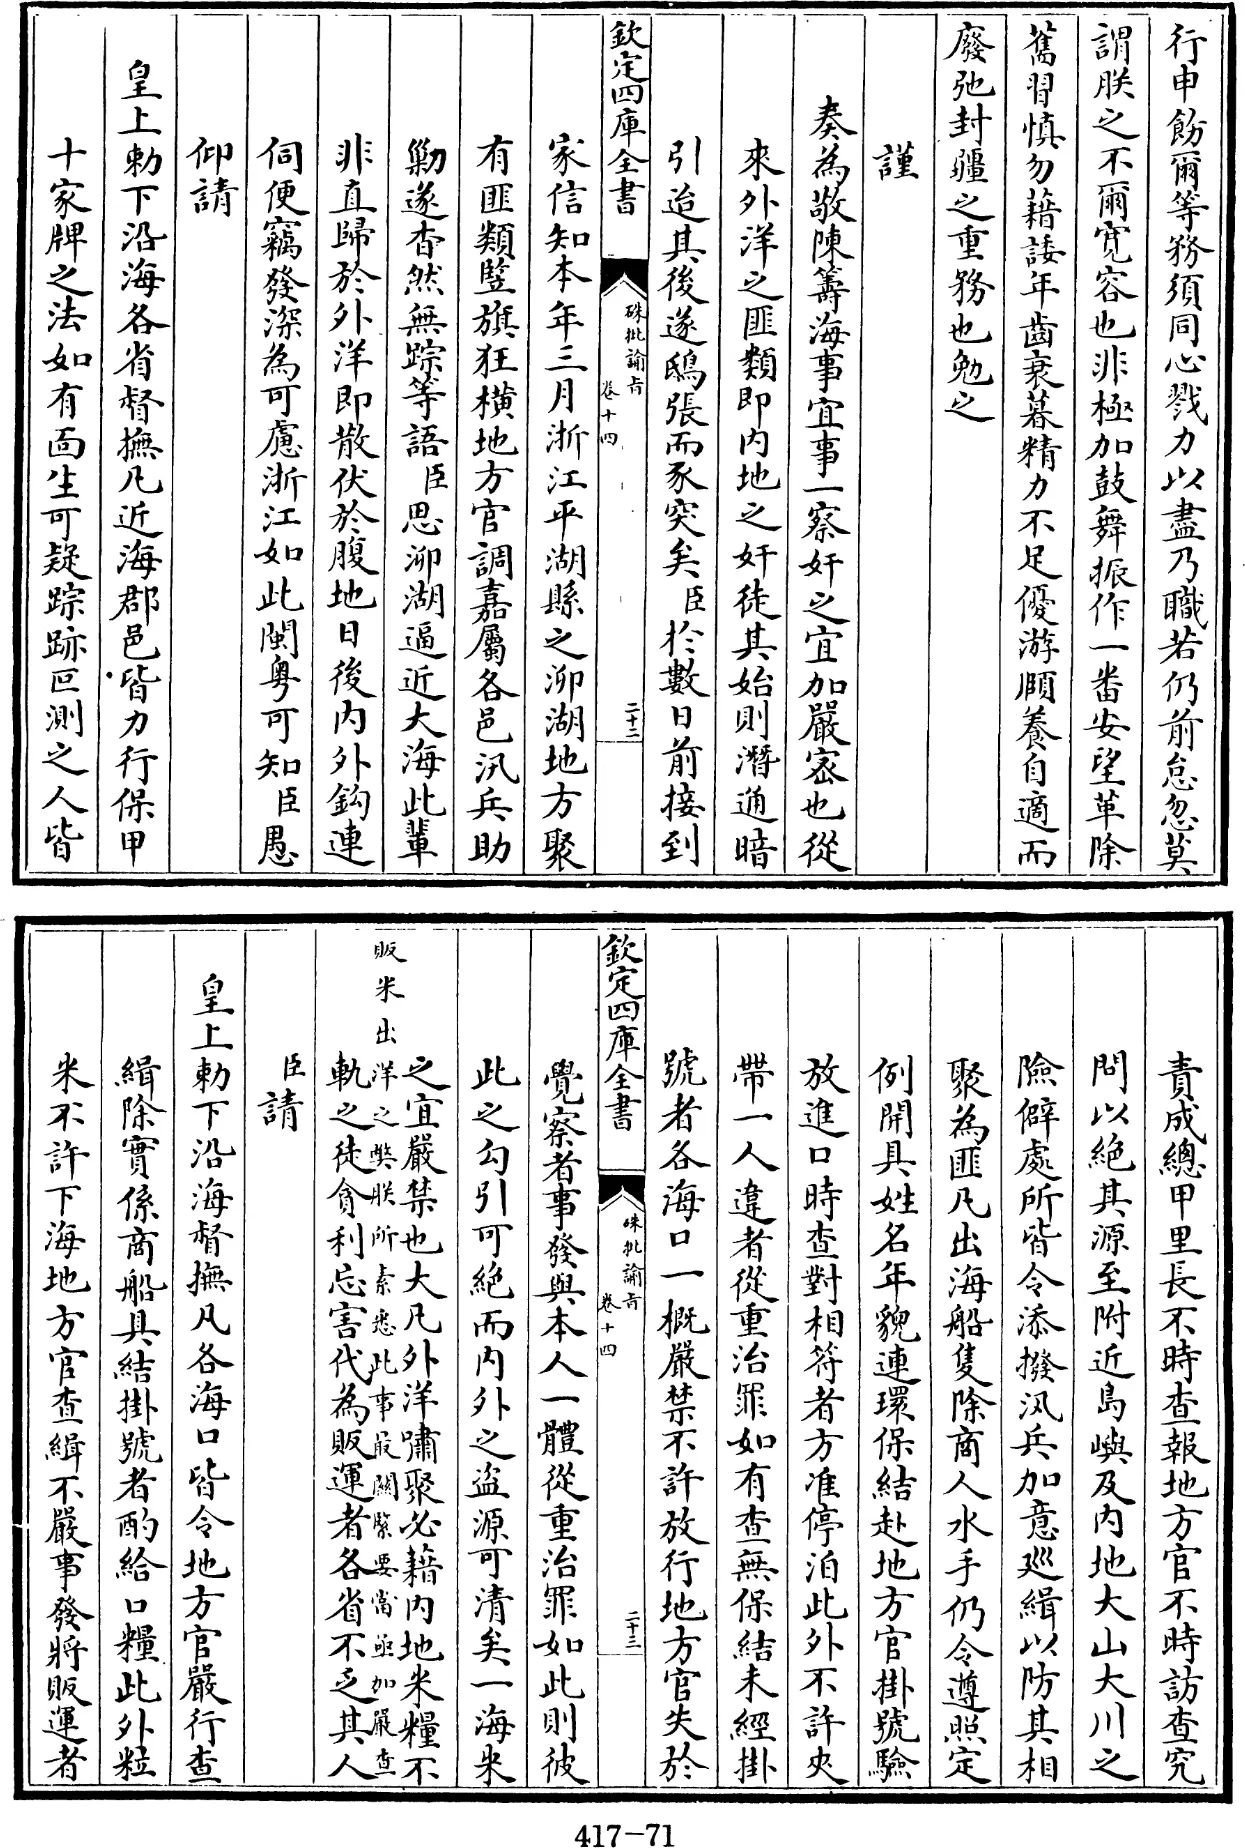 行申飭爾等務須同心戮力以盡乃職若仍前怠忽莫
謂朕之不爾寬容也非極加鼓舞振作一畨安望革除
舊習慎勿藉諉年齒衰暮精力不足優游頤養自適而
廢弛封疆之重務也勉之
謹
奏為敬陳籌海事宜事一察奸之宜加嚴宻也從
來外洋之匪類即内地之奸徒其始則潛通暗
引迨其後遂鴟張而豕突矣臣於數日前接到
欽定四庫全書
硃批諭旨
卷十四
二十二
家信知本年三月浙江平湖縣之泖湖地方聚
有匪類竪旗狂橫地方官調嘉屬各邑汛兵助
勦遂杳然無踪等語臣思泖湖逼近大海此輩
非直歸於外洋即散伏於腹地日後内外鈎連
伺便竊發深為可慮浙江如此閩粤可知臣愚
仰請
皇上勅下沿海各省督撫凡近海郡邑皆力行保甲
十家牌之法如有面生可疑踪跡叵測之人皆
責成總甲里長不時查報地方官不時訪查究
問以絶其源至附近島嶼及内地大山大川之
險僻處所皆令添撥汛兵加意廵緝以防其相
聚為匪凡出海船隻除商人水手仍令遵照定
例開具姓名年貌連環保結赴地方官掛號驗
放進口時查對相符者方准停泊此外不許夾
帶一人違者從重治罪如有查無保結未經掛
號者各海口一概嚴禁不許放行地方官失於
欽定四庫全書
硃批諭旨
卷十四
二十三
覺察者事發與本人一體從重治罪如此則彼
此之勾引可絶而内外之盗源可清矣一海米
之宜嚴禁也大凡外洋嘯聚必藉内地米糧不
販米出洋之弊朕所素悉此事最關緊要當亟加嚴查
軌之徒貪利忘害代為販運者各省不乏其人
臣請
皇上勅下沿海督撫凡各海口皆令地方官嚴行查
緝除實係商船具結掛號者酌給口糧此外粒
米不許下海地方官查緝不嚴事發將販運者
417-71